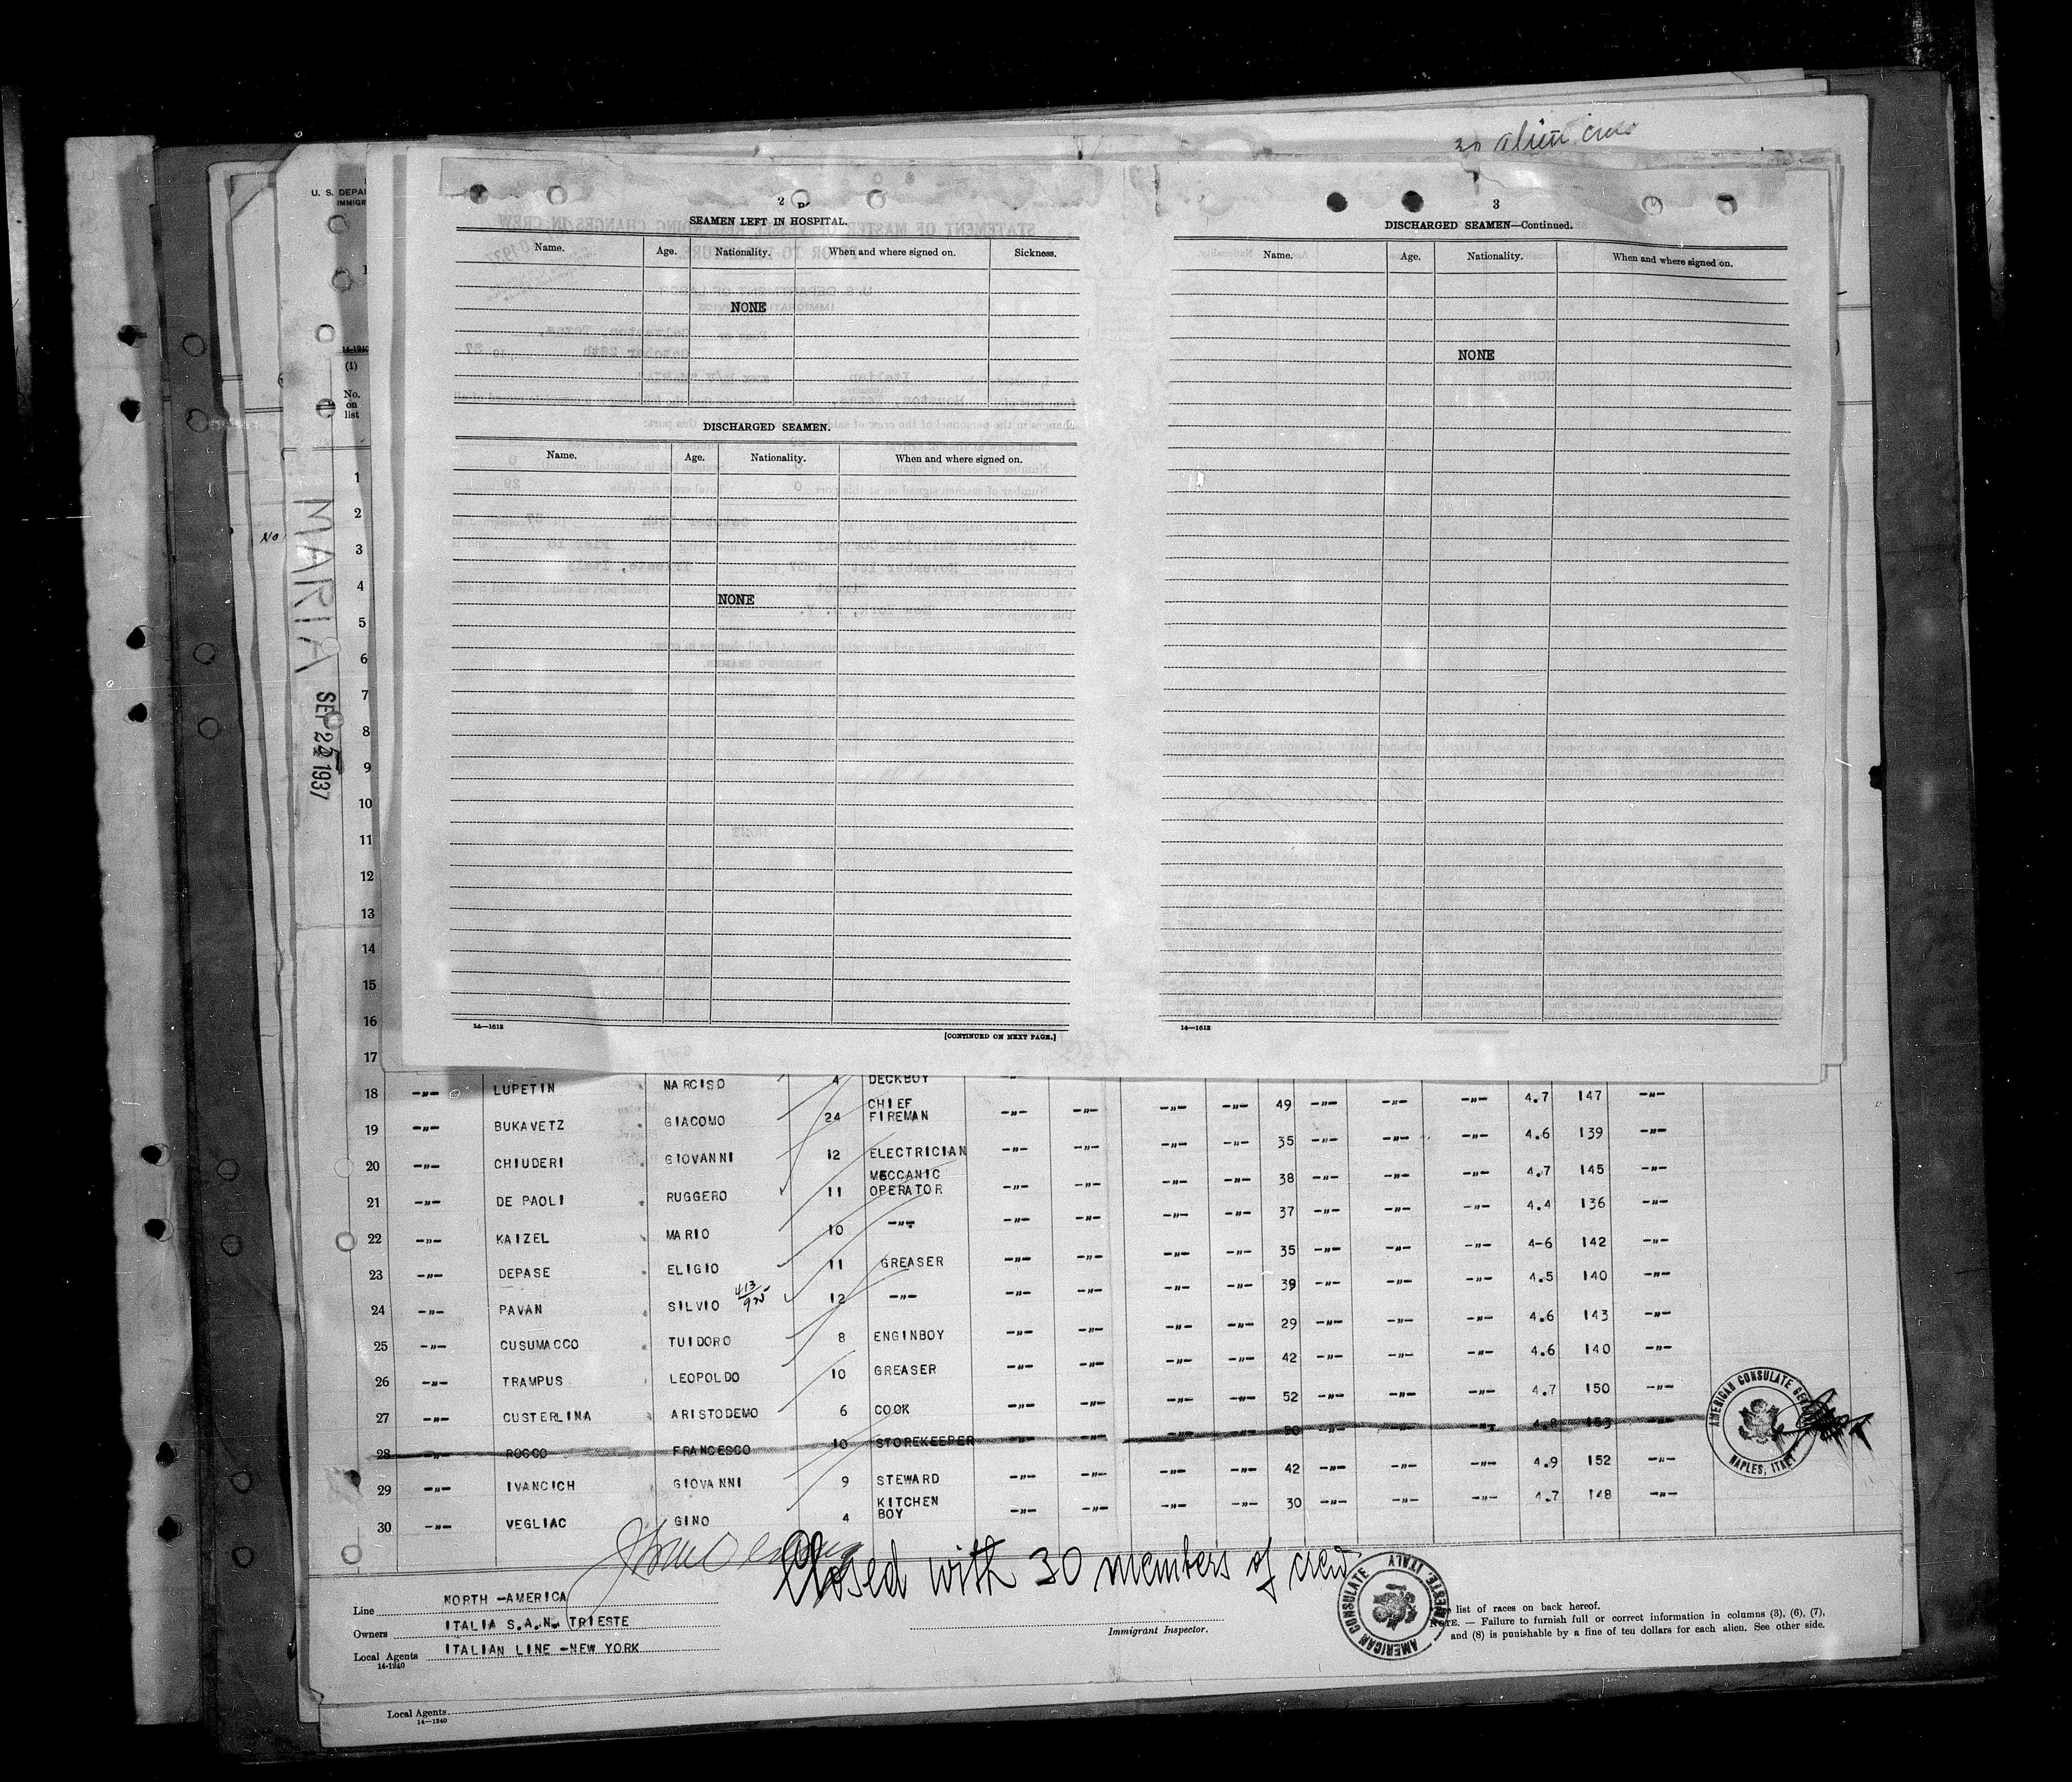 30 alien crew
U. S. DEPA
IMMIGR
14-1240
(1)
No.
on
list
No
MARIA
SEP 25 1937
2
SEAMEN LEFT IN HOSPITAL.
Name. Age. Nationality. When and where signed on. Sickness.
NONE
DISCHARGED SEAMEN.
Name. Age. Nationality. When and where signed on.
NONE
14—1613
[CONTINUED ON NEXT PAGE.]
3
DISCHARGED SEAMEN—Continued.
Name. Age. Nationality. When and where signed on.
NONE
14—1613
1
2
3
4
5
6
7
8
9
10
11
12
13
14
15
16
17
18 -"- LUPETIN NARCISO 4 DECKBOY
19 -"- BUKAVETZ GIACOMO 24 CHIEF FIREMAN -"- -"- -"- -"- 49 -"- -"- -"- 4.7 147 -"-
20 -"- CHIUDERI GIOVANNI 12 ELECTRICIAN -"- -"- -"- -"- 35 -"- -"- -"- 4.6 139 -"-
21 -"- DE PAOLI RUGGERO 11 MECCANIC OPERATOR -"- -"- -"- -"- 38 -"- -"- -"- 4.7 145 -"-
22 -"- KAIZEL MARIO 10 -"- -"- -"- -"- -"- 37 -"- -"- -"- 4.4 136 -"-
23 -"- DEPASE ELIGIO 11 GREASER -"- -"- -"- -"- 35 -"- -"- -"- 4-6 142 -"-
24 -"- PAVAN SILVIO 413/925 12 -"- -"- -"- -"- -"- 39 -"- -"- -"- 4.5 140 -"-
25 -"- CUSUMACCO TUIDORO 8 ENGINBOY -"- -"- -"- -"- 29 -"- -"- -"- 4.6 143 -"-
26 -"- TRAMPUS LEOPOLDO 10 GREASER -"- -"- -"- -"- 42 -"- -"- -"- 4.6 140 -"-
27 -"- CUSTERLINA ARISTODEMO 6 COOK -"- -"- -"- -"- 52 -"- -"- -"- 4.7 150 -"-
28 -"- ROCCO FRANCESCO 10 STOREKEEPER -"- -"- -"- -"- -"- -"- -"- 4.8 153 -"-
29 -"- IVANCICH GIOVANNI 9 STEWARD -"- -"- -"- -"- 42 -"- -"- -"- 4.9 152 -"-
30 -"- VEGLIAC GINO 4 KITCHEN BOY -"- -"- -"- -"- 30 -"- -"- -"- 4.7 148 -"-
AMERICAN CONSULATE GENERAL
NAPLES, ITALY
Closed with 30 members of crew
AMERICAN CONSULATE
TRIESTE, ITALY
Line NORTH -AMERICA
Owners ITALIA S.A.N. TRIESTE
Local Agents ITALIAN LINE -NEW YORK
14-1240
Immigrant Inspector.
list of races on back hereof.
NOTE. — Failure to furnish full or correct information in columns (3), (6), (7),
and (8) is punishable by a fine of ten dollars for each alien. See other side.
Local Agents
14—1240